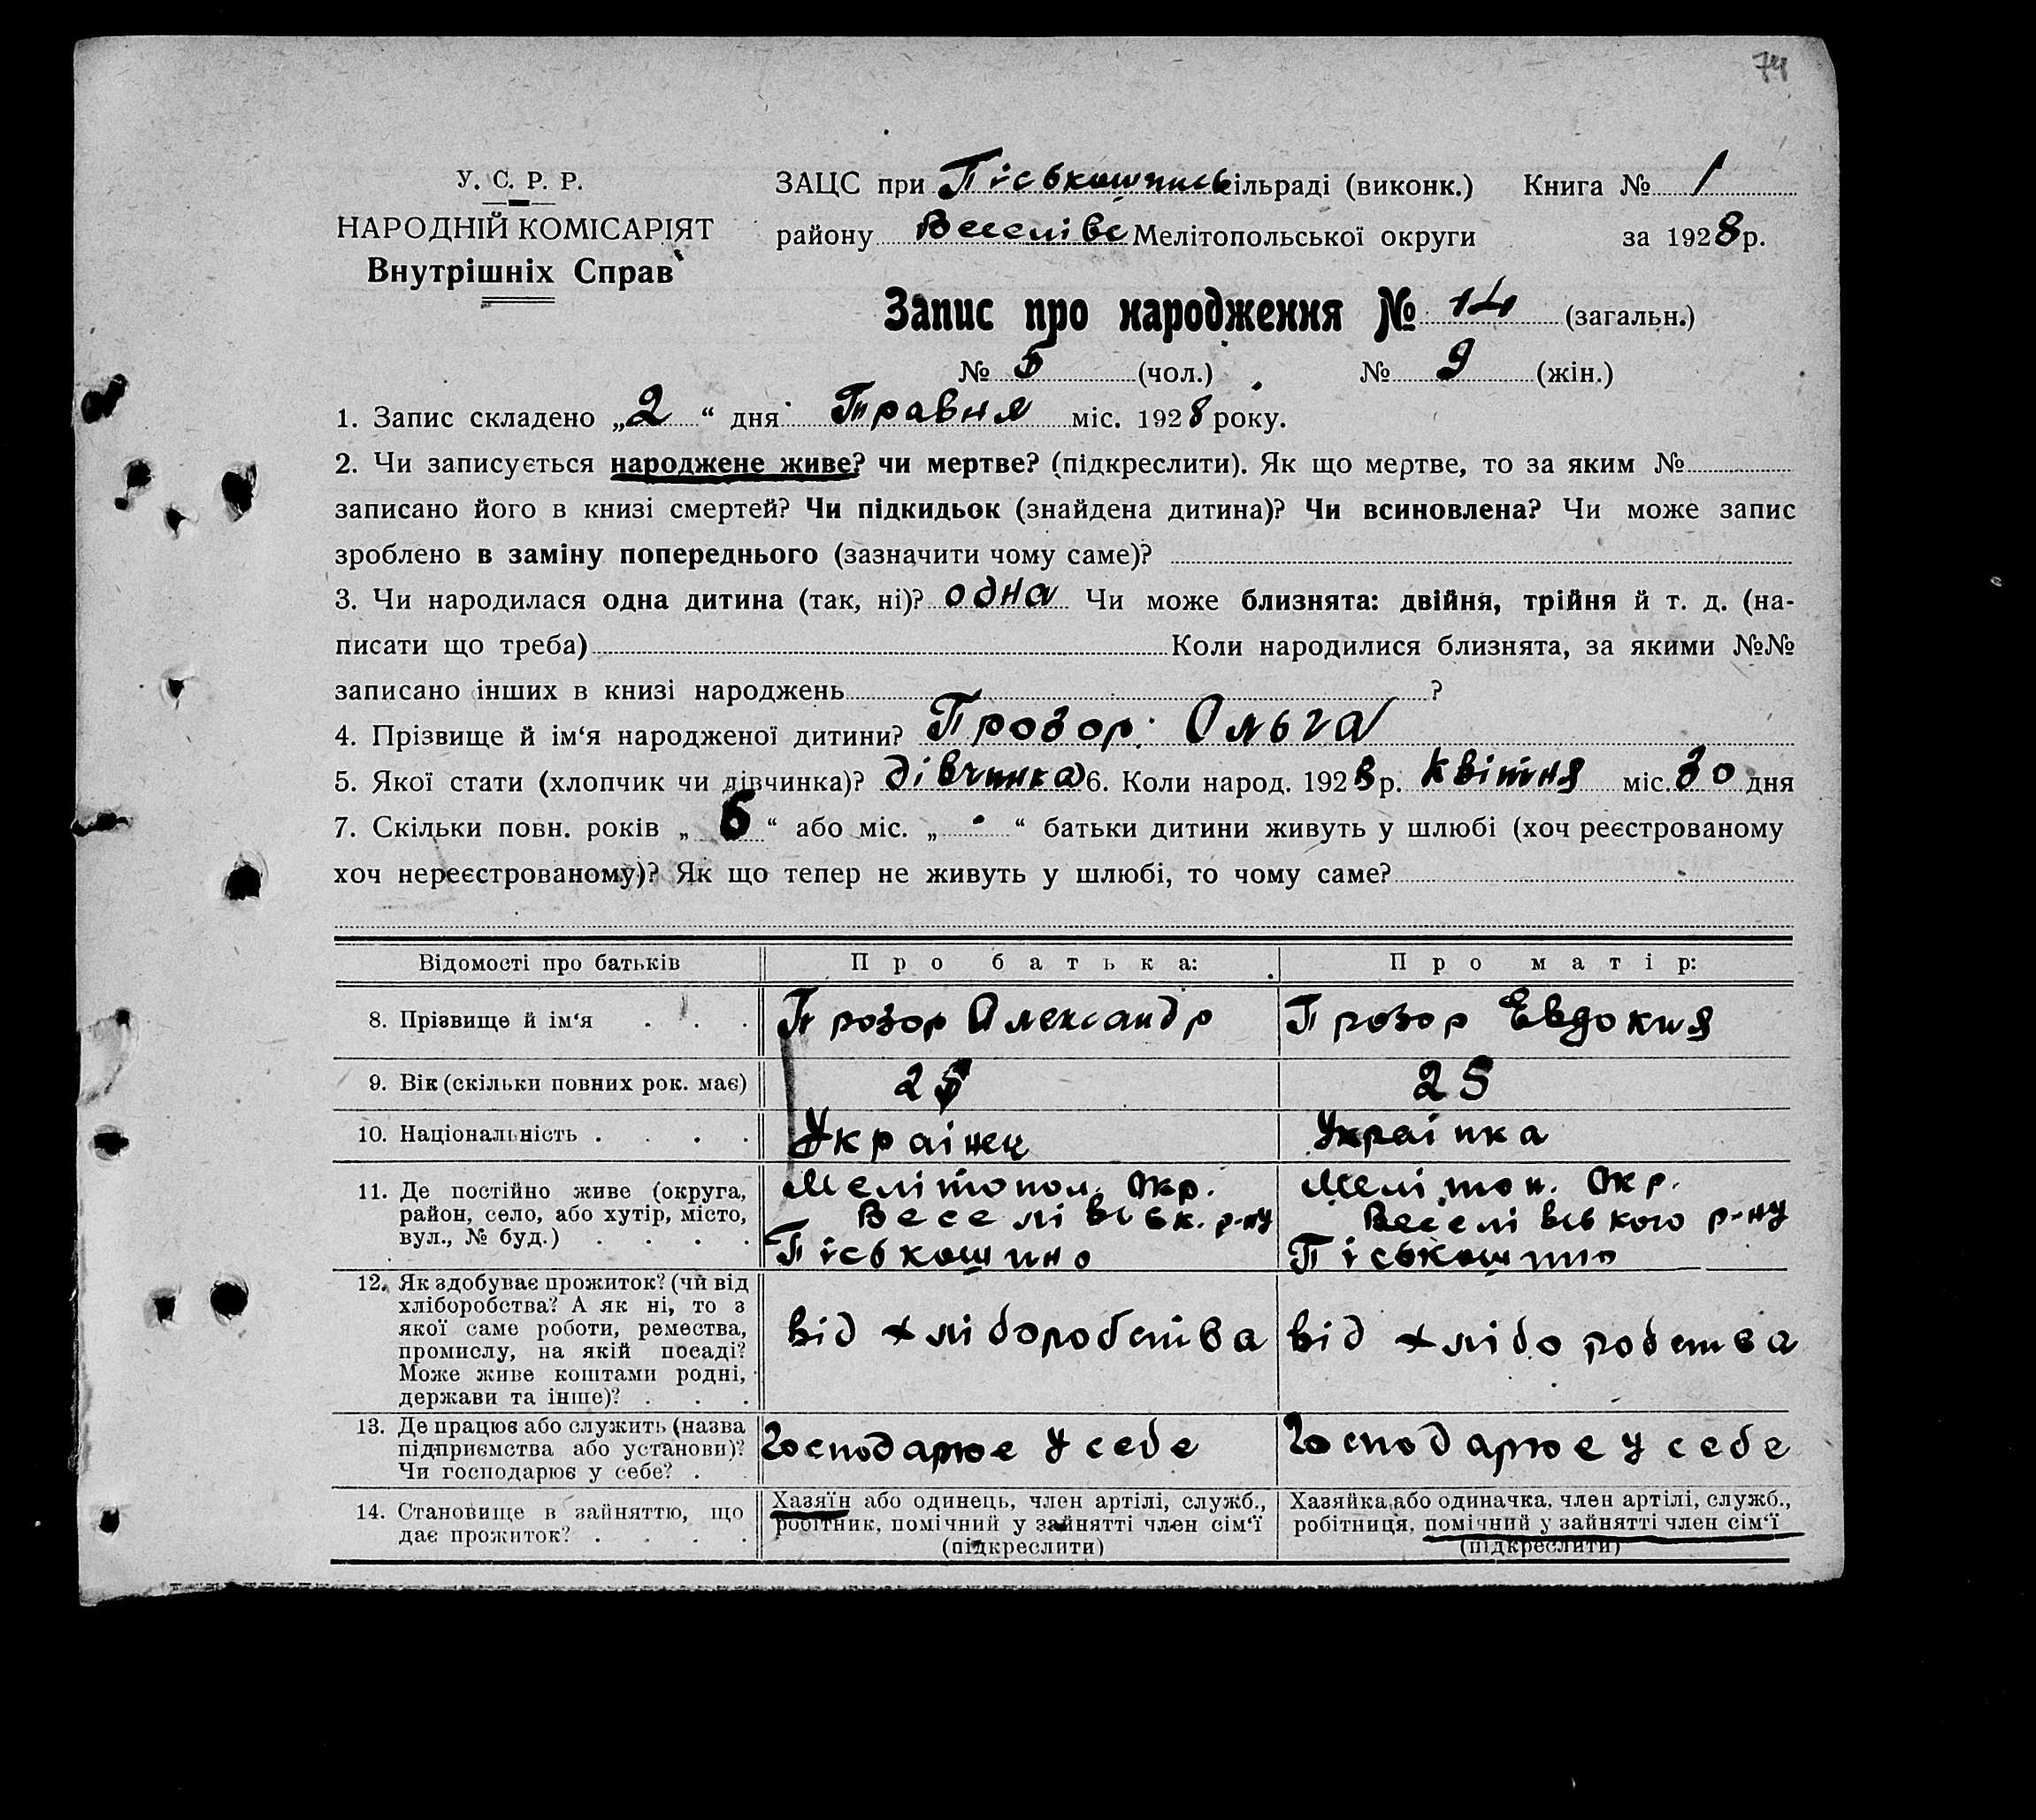 74
У. С. Р. Р.
НАРОДНІЙ КОМІСАРІЯТ
Внутрішніх Справ
ЗАЦС при Піськошинськ ільраді (виконк.) Книга № 1
району Веселівс Мелітопольської округи за 1928 р.
Запис про народження № 14 (загальн.)
№ 5 (чол.) № 9 (жін.)
1. Запис складено „2“ дня Травня міс. 1928 року.
2. Чи записується народжене живе? чи мертве? (підкреслити). Як що мертве, то за яким №
записано його в книзі смертей? Чи підкидьок (знайдена дитина)? Чи всиновлена? Чи може запис
зроблено в заміну попереднього (зазначити чому саме)?
3. Чи народилася одна дитина (так, ні)? одна Чи може близнята: двійня, трійня й т. д. (на-
писати що треба) Коли народилися близнята, за якими №№
записано інших в книзі народжень ?
4. Прізвище й ім‘я народженої дитини? Прозор Ольга
5. Якої стати (хлопчик чи дівчинка)? дівчинка 6. Коли народ. 1928 р. квітня міс. 30 дня
7. Скільки повн. років „6“ або міс. „ “ батьки дитини живуть у шлюбі (хоч реєстрованому
хоч нереєстрованому)? Як що тепер не живуть у шлюбі, то чому саме?
Відомості про батьків Про батька: Про матір:
8. Прізвище й ім‘я . . . Прозор Олександр Прозор Евдокия
9. Вік (скільки повних рок. має) 25 25
10. Національність . . . . Українец Українка
11. Де постійно живе (округа, район, село, або хутір, місто, вул., № буд.) . . . .
Мелітопол. Окр.
Веселівськ. р-ну
Піськошино
Мелітоп. Окр.
Веселівського р-ну
Піськошино
12. Як здобуває прожиток? (чи від
хліборобства? А як ні, то з
якої саме роботи, ремества,
промислу, на якій посаді?
Може живе коштами родні,
держави та інше)? . . .
від хліборобства від хліборобства
13. Де працює або служить (назва
підприємства або установи)?
Чи господарює у себе? .
Господарює у себе Господарює у себе
14. Становище в зайняттю, що
дає прожиток? . . . .
Хазяїн або одинець, член артілі, служб.,
робітник, помічний у зайнятті член сім‘ї
(підкреслити)
Хазяйка або одиначка, член артілі, служб.,
робітниця, помічний у зайнятті член сім‘ї
(підкреслити)